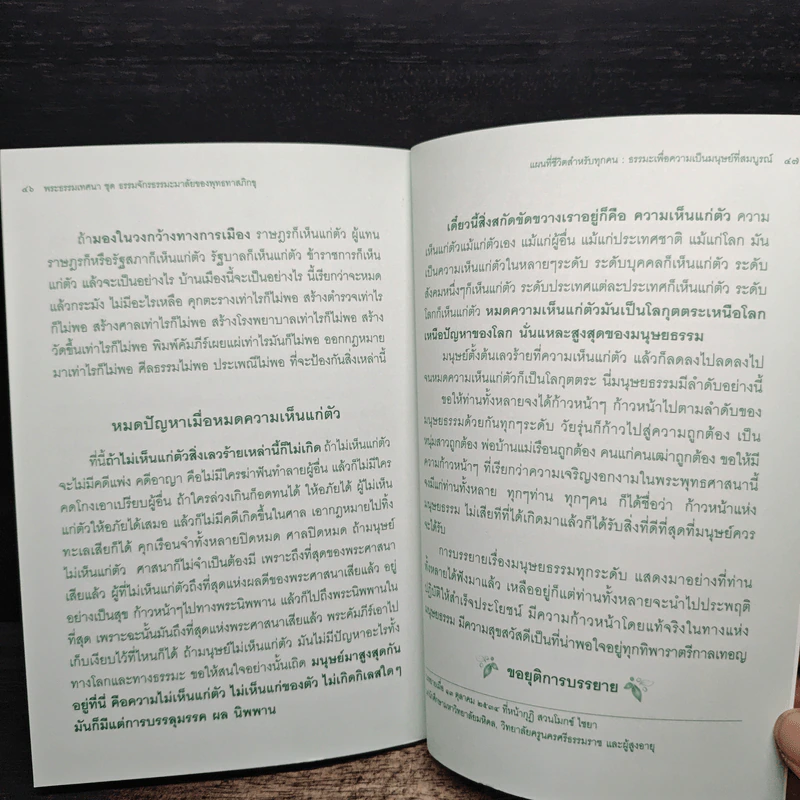 ๔๖ พระธรรมเทศนา ชุด ธรรมจักรธรรมะมาลัยของพุทธทาสภิกขุ
ถ้ามองในวงกว้างทางการเมือง ราษฎรก็เห็นแก่ตัว ผู้แทน
ราษฎรก็หรือรัฐสภาก็เห็นแก่ตัว รัฐบาลก็เห็นแก่ตัว ข้าราชการก็เห็น
แก่ตัว แล้วจะเป็นอย่างไร บ้านเมืองนี้จะเป็นอย่างไร นี้เรียกว่าจะหมด
แล้วกระมัง ไม่มีอะไรเหลือ คุกตะรางเท่าไรก็ไม่พอ สร้างตำรวจเท่าไร
ก็ไม่พอ สร้างศาลเท่าไรก็ไม่พอ สร้างโรงพยาบาลเท่าไรก็ไม่พอ สร้าง
วัดขึ้นเท่าไรก็ไม่พอ พิมพ์คัมภีร์เผยแผ่เท่าไรมันก็ไม่พอ ออกกฎหมาย
มาเท่าไรก็ไม่พอ ศีลธรรมไม่พอ ประเพณีไม่พอ ที่จะป้องกันสิ่งเหล่านี้
หมดปัญหาเมื่อหมดความเห็นแก่ตัว
ที่นี้ถ้าไม่เห็นแก่ตัวสิ่งเลวร้ายเหล่านี้ก็ไม่เกิด ถ้าไม่เห็นแก่ตัว
จะไม่มีคดีแพ่ง คดีอาญา คือไม่มีใครฆ่าฟันทำลายผู้อื่น แล้วก็ไม่มีใคร
คดโกงเอาเปรียบผู้อื่น ถ้าใครล่วงเกินก็อดทนได้ ให้อภัยได้ ผู้ไม่เห็น
แก่ตัวให้อภัยได้เสมอ แล้วก็ไม่มีคดีเกิดขึ้นในศาล เอากฎหมายไปทิ้ง
ทะเลเสียก็ได้ คุกเรือนจำทั้งหลายปิดหมด ศาลปิดหมด ถ้ามนุษย์
ไม่เห็นแก่ตัว ศาสนาก็ไม่จำเป็นต้องมี เพราะถึงที่สุดของพระศาสนา
เสียแล้ว ผู้ที่ไม่เห็นแก่ตัวถึงที่สุดแห่งผลดีของพระศาสนาเสียแล้ว อยู่
อย่างเป็นสุข ก้าวหน้าๆไปทางพระนิพพาน แล้วก็ไปถึงพระนิพพานใน
ที่สุด เพราะฉะนั้นมันถึงที่สุดแห่งพระศาสนาเสียแล้ว พระคัมภีร์เอาไป
เก็บเงียบไว้ที่ไหนก็ได้ ถ้ามนุษย์ไม่เห็นแก่ตัว มันไม่มีปัญหาอะไรทั้ง
ทางโลกและทางธรรมะ ขอให้สนใจอย่างนั้นเถิด มนุษย์มาสูงสุดกัน
อยู่ที่นี่ คือความไม่เห็นแก่ตัว ไม่เห็นแก่ของตัว ไม่เกิดกิเลสใดๆ
มันก็มีแต่การบรรลุมรรค ผล นิพพาน
แผนที่ชีวิตสำหรับทุกคน : ธรรมะเพื่อความเป็นมนุษย์ที่สมบูรณ์ ๔๗
เดี๋ยวนี้สิ่งสกัดขัดขวางเราอยู่ก็คือ ความเห็นแก่ตัว ความ
เห็นแก่ตัวแม้แก่ตัวเอง แม้แก่ผู้อื่น แม้แก่ประเทศชาติ แม้แก่โลก มัน
เป็นความเห็นแก่ตัวในหลายๆระดับ ระดับบุคคลก็เห็นแก่ตัว ระดับ
สังคมหนึ่งๆก็เห็นแก่ตัว ระดับประเทศแต่ละประเทศก็เห็นแก่ตัว ระดับ
โลกก็เห็นแก่ตัว หมดความเห็นแก่ตัวมันเป็นโลกุตตระเหนือโลก
เหนือปัญหาของโลก นั่นแหละสูงสุดของมนุษยธรรม
มนุษย์ตั้งต้นเลวร้ายที่ความเห็นแก่ตัว แล้วก็ลดลงไปลดลงไป
จนหมดความเห็นแก่ตัวก็เป็นโลกุตตระ นี่มนุษยธรรมมีลำดับอย่างนี้
ขอให้ท่านทั้งหลายจงได้ก้าวหน้าๆ ก้าวหน้าไปตามลำดับของ
มนุษยธรรมด้วยกันทุกๆระดับ วัยรุ่นก็ก้าวไปสู่ความถูกต้อง เป็น
หนุ่มสาวถูกต้อง พ่อบ้านแม่เรือนถูกต้อง คนแก่คนเฒ่าถูกต้อง ขอให้มี
ความก้าวหน้าๆ ที่เรียกว่าความเจริญงอกงามในพระพุทธศาสนานี้
จงมีแก่ท่านทั้งหลาย ทุกๆท่าน ทุกๆคน ก็ได้ชื่อว่า ก้าวหน้าแห่ง
มนุษยธรรม ไม่เสียทีที่ได้เกิดมาแล้วก็ได้รับสิ่งที่ดีที่สุดที่มนุษย์ควร
จะได้รับ
การบรรยายเรื่องมนุษยธรรมทุกระดับ แสดงมาอย่างที่ท่าน
ทั้งหลายได้ฟังมาแล้ว เหลืออยู่ก็แต่ท่านทั้งหลายจะนำไปประพฤติ
ปฏิบัติให้สำเร็จประโยชน์ มีความก้าวหน้าโดยแท้จริงในทางแห่ง
มนุษยธรรม มีความสุขสวัสดีเป็นที่น่าพอใจอยู่ทุกทิพาราตรีกาลเทอญ
ขอยุติการบรรยาย
ตุลาคม ๒๕๓๔ ที่หน้ากุฏิ สวนโมกข์ ไชยา
มหาวิทยาลัยมหิดล, วิทยาลัยครูนครศรีธรรมราช และผู้สูงอายุ